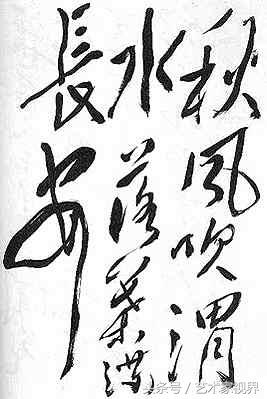 秋風吹渭
水落葉滿
長安
头条号 / 艺术家视界